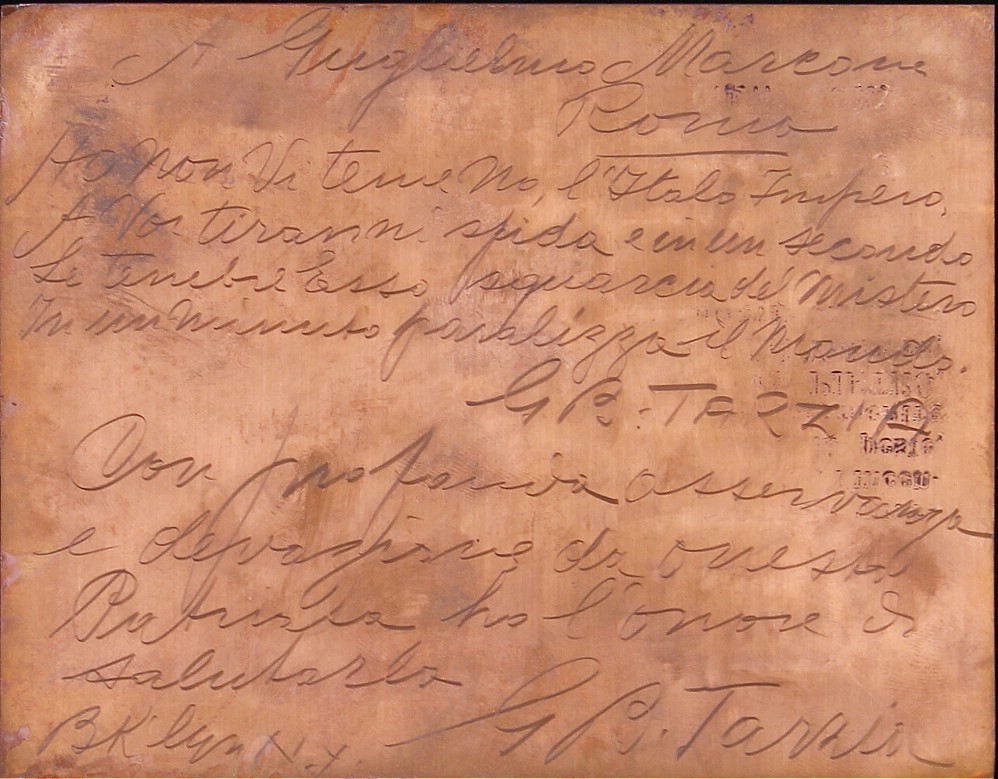 A Guglielmo Marconi
Roma
No non Vi teme No, l'Italo Impero,
A Voi tiranni sfida e in un secondo
Le tenebre Esso squarcia del Mistero
In un Minuto paralizza il Mondo.
G B. TARZIA
Con profonda osservanza
e devozione da onesto
Patriota ho l'onore di
salutarlo
G B. Tarzia
BKlyn N.Y.